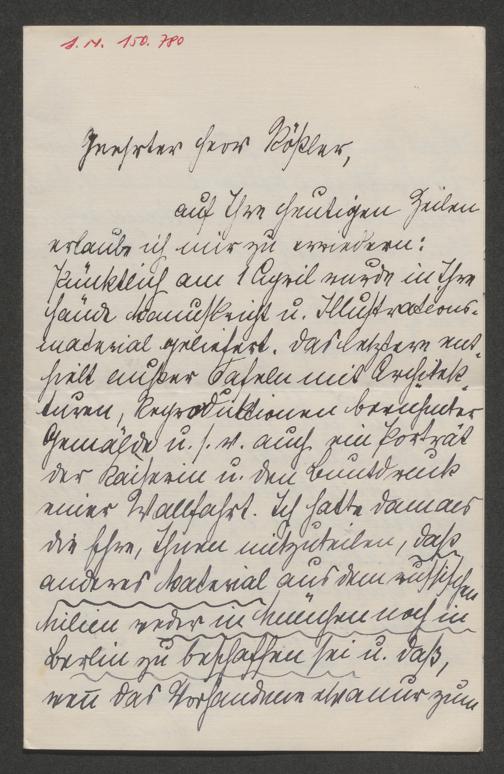 I. N. 150.780
Geehrter Herr Rößler,
auf Ihre heutigen Zeilen
erlaube ich mir zu erwiedern:
Pünktlich am 1 April wurde in Ihre
Hände Manuskript u. Illustrations-
material geliefert. Das letztere ent-
hielt außer Tafeln mit Architek-
turen, Reproduktionen berühmter
Gemälde u. s. w. auch ein Porträt
der Kaiserin u. den Buntdruck
einer Wallfahrt. Ich hatte damals
die Ehre, Ihnen mitzuteilen, daß
anderes Material aus dem russischen
Milieu weder in München noch in
Berlin zu beschaffen sei u. daß,
wenn das Vorhandene etwa nur zum